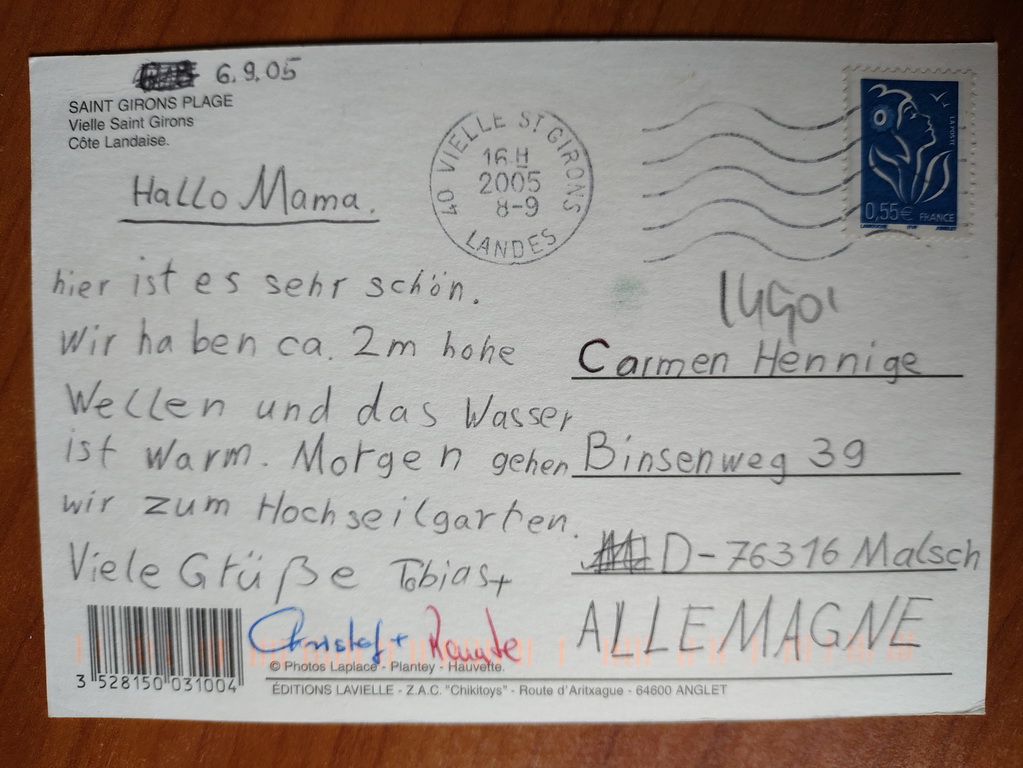 6.9.05
SAINT GIRONS PLAGE
Vielle Saint Girons
Côte Landaise.
Hallo Mama.
hier ist es sehr schön.
Wir haben ca. 2m hohe
Wellen und das Wasser
ist warm. Morgen gehen
wir zum Hochseilgarten.
Viele Grüße Tobias+
Christof + Renate
40 VIELLE ST GIRONS
16H
2005
8-9
LANDES
LA POSTE
0,55€ FRANCE
Carmen Hennige
Binsenweg 39
D-76316 Malsch
ALLEMAGNE
3 528150 031004
© Photos Laplace - Plantey - Hauvette.
ÉDITIONS LAVIELLE - Z.A.C. "Chikitoys" - Route d'Aritxague - 64600 ANGLET